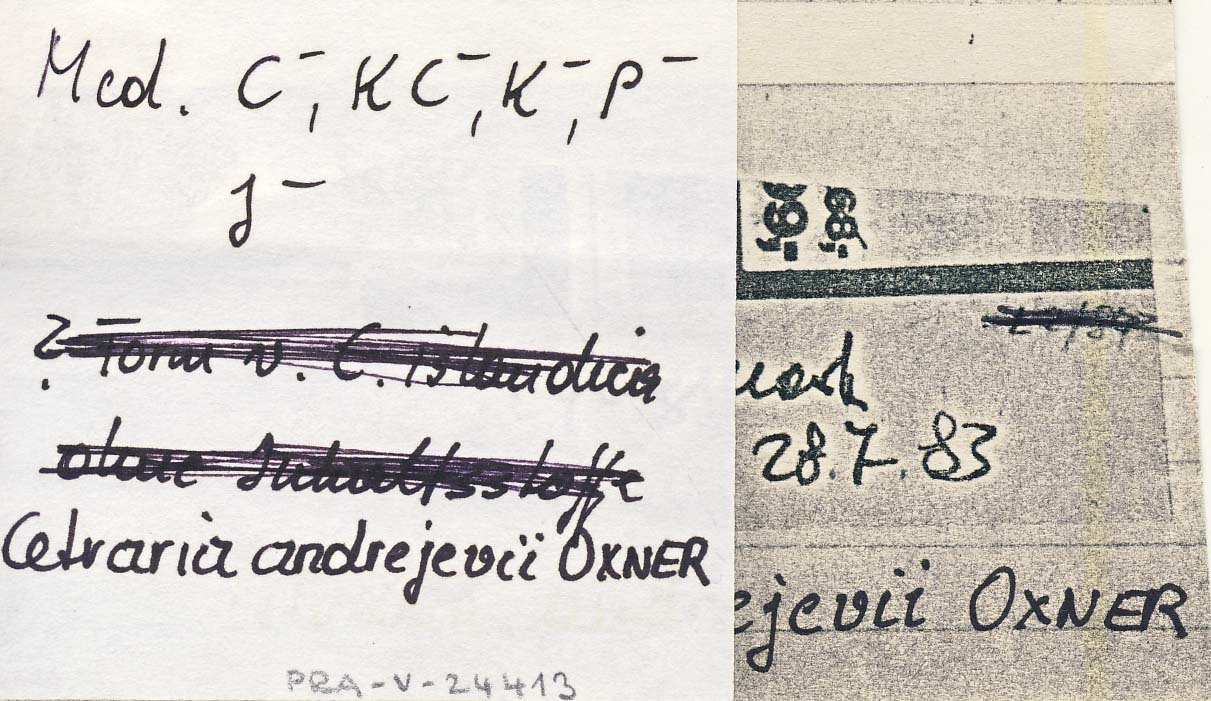 Med. C⁻, KC⁻, K⁻, P⁻
J⁻
? Form v. C. islandica
ohne Inhaltsstoffe
Cetraria andrejevii OXNER
PRA-V-24413
28.7.83
ejevii OXNER